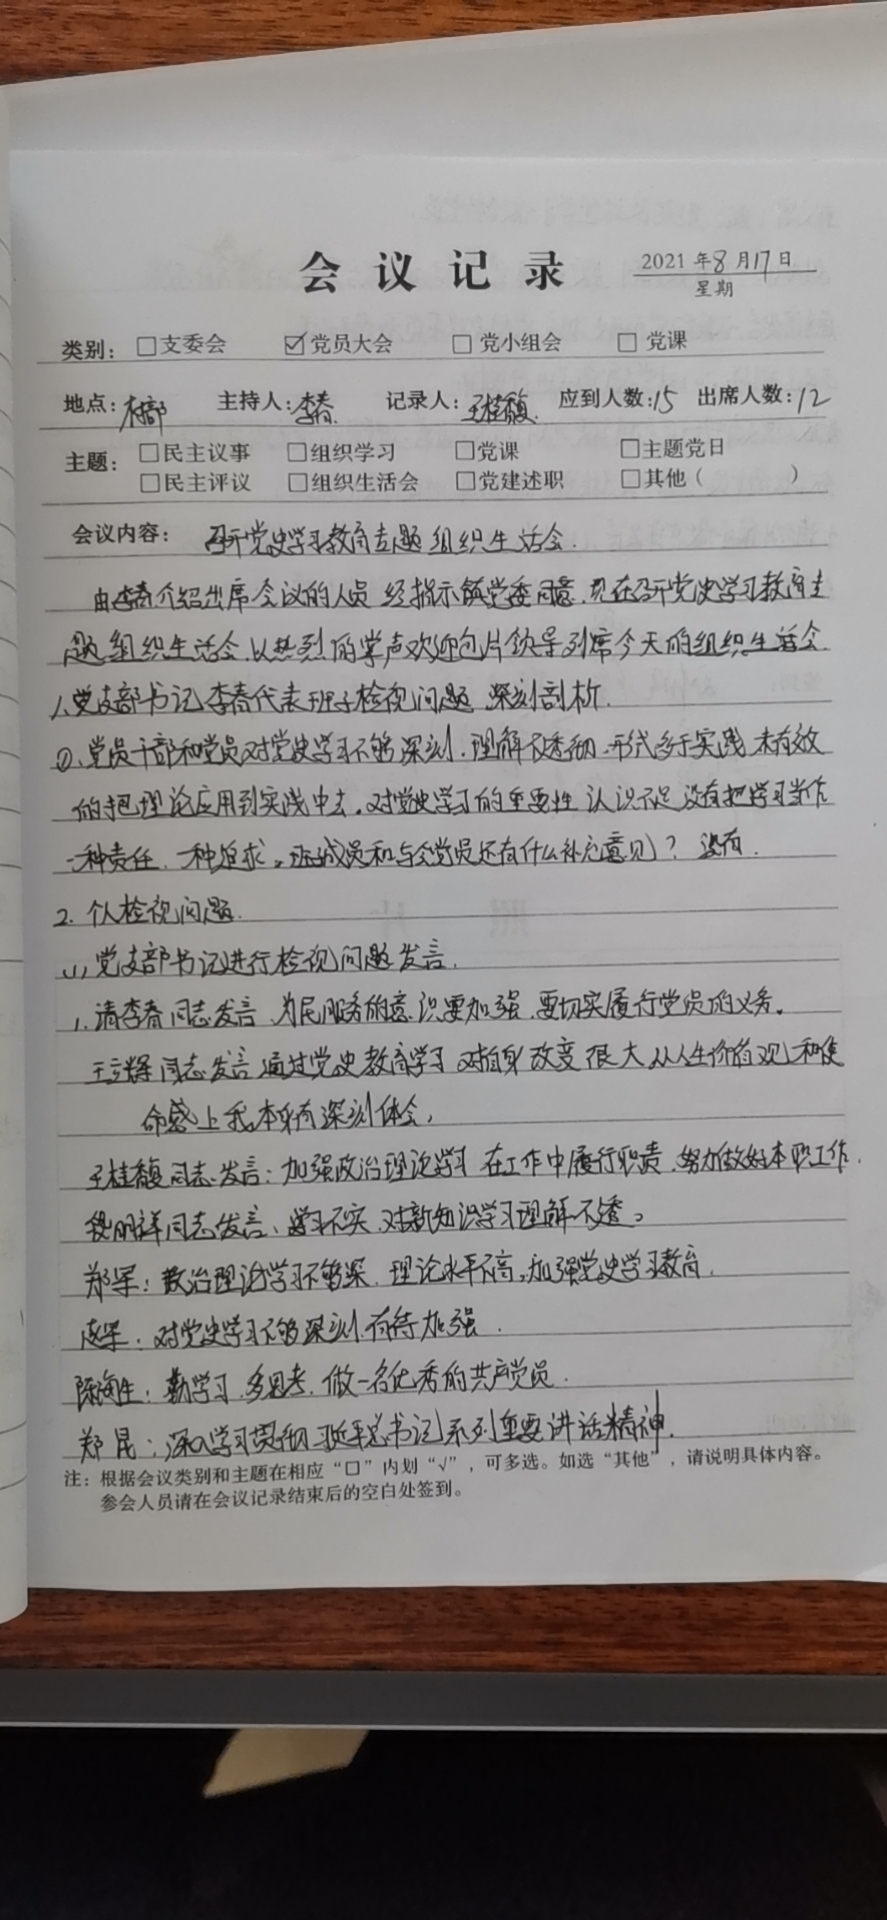 会议记录 2021年8月17日
星期
类别：□支委会 ☑党员大会 □党小组会 □党课
地点：村部 主持人：李春 记录人：王桂馥 应到人数：15 出席人数：12
主题：□民主议事 □组织学习 □党课 □主题党日
□民主评议 □组织生活会 □党建述职 □其他（ ）
会议内容：召开党史学习教育专题组织生活会.
由李春介绍出席会议的人员 经指示镇党委同意.现在召开党史学习教育专
题组织生活会.以热烈的掌声欢迎包片领导列席今天的组织生活会.
1.党支部书记李春代表班子检视问题 深刻剖析.
①、党员干部和党员对党史学习不够深刻.理解不透彻.形式多于实践 未有效
的把理论应用到实践中去。对党史学习的重要性认识不足 没有把学习当作
一种责任.一种追求。班成员和与会党员还有什么补充意见？没有.
2.个人检视问题.
(1)党支部书记进行检视问题发言.
1.请李春同志发言.为民服务的意识要加强.要切实履行党员的义务。
王立辉同志发言 通过党史教育学习 对自身改变很大 从人生价值观和使
命感上我本身有深刻体会，
王桂馥同志发言：加强政治理论学习 在工作中履行职责.努力做好本职工作.
明祥同志发言、学习不实.对新知识学习理解不透。
郑军：政治理论学习不够深.理论水平不高，加强党史学习教育.
军：对党史学习不够深刻.有待加强.
陈海生：勤学习.多思考.做一名优秀的共产党员.
郑昆：深入学习贯彻习近平总书记系列重要讲话精神.
注：根据会议类别和主题在相应“□”内划“√”，可多选。如选“其他”，请说明具体内容。
参会人员请在会议记录结束后的空白处签到。